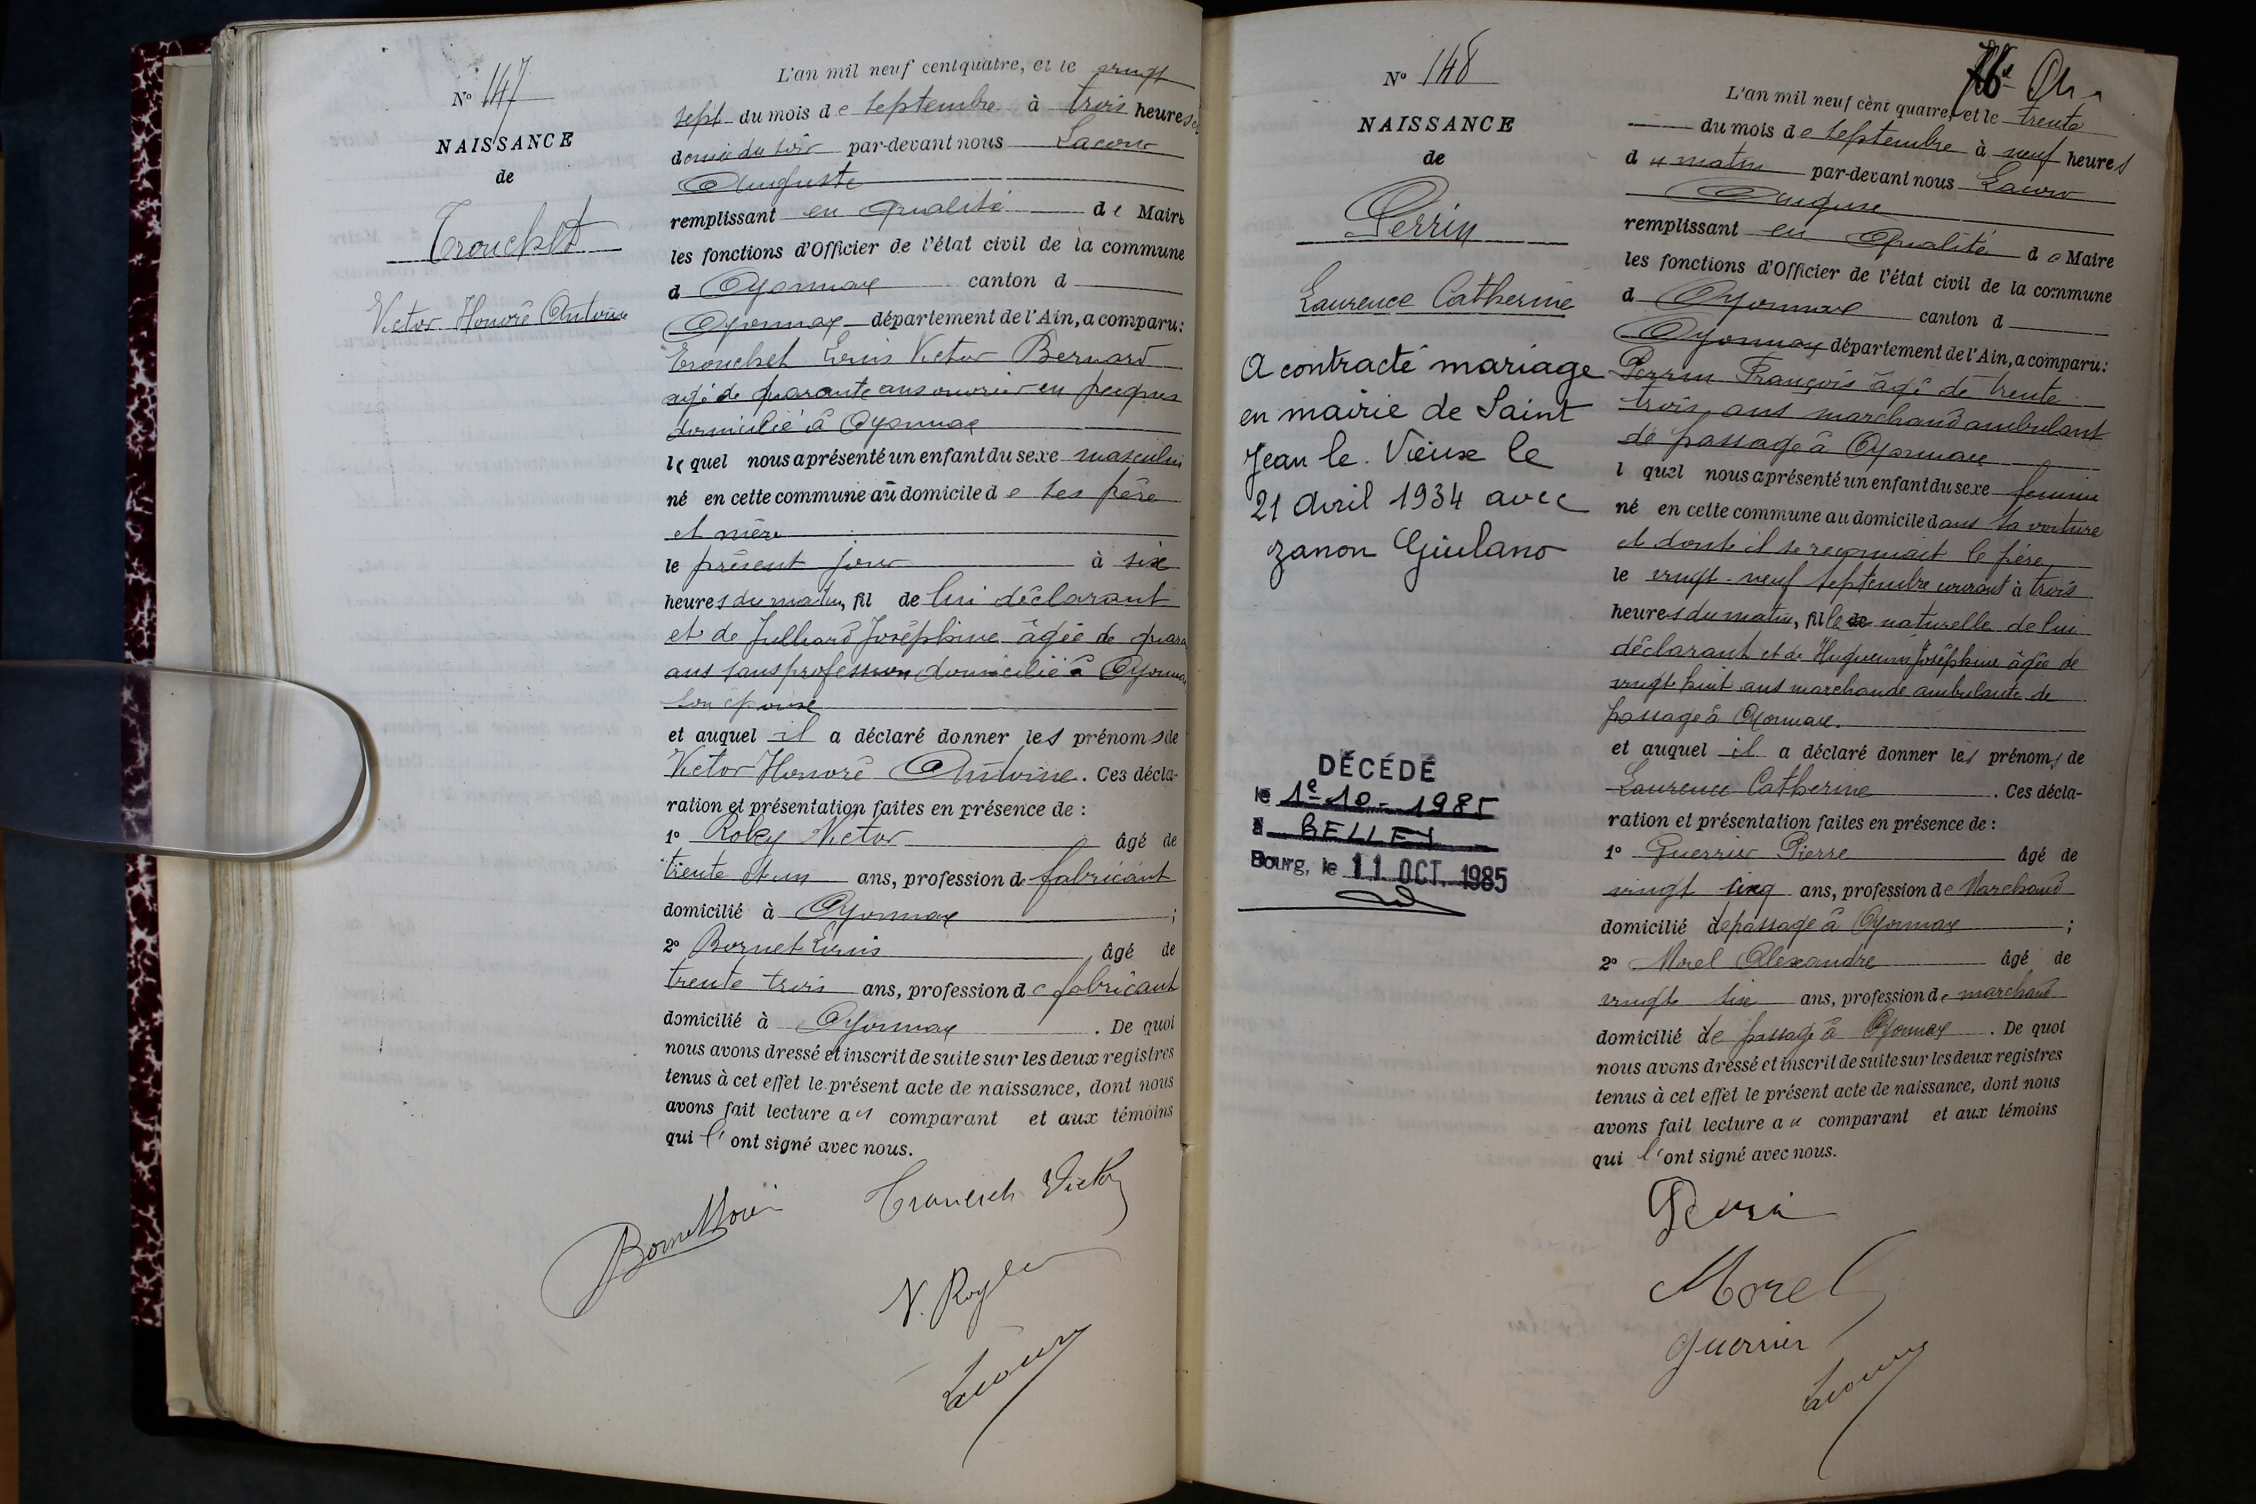 N° 147
NAISSANCE
de
Trouchet
Victor Honoré Antoine
L'an mil neuf cent quatre, et le vingt
sept du mois de septembre à trois heures et
demie du soir par-devant nous Lacour
Auguste
remplissant en qualité de Maire
les fonctions d'Officier de l'état civil de la commune
d Oyonnax canton d
Oyonnax département de l'Ain, a comparu :
Trouchet Louis Victor Bernard
agé de quarante ans ouvrier en peignes
domicilié à Oyonnax
lequel nous a présenté un enfant du sexe masculin
né en cette commune au domicile de ses père
et mère
le présent jour à six
heures du matin, fil de lui déclarant
et de Julliard Joséphine âgée de quara
ans sans profession domicilié à Oyonnax
son épouse
et auquel il a déclaré donner les prénoms de
Victor Honoré Antoine. Ces décla-
ration et présentation faites en présence de :
1° Roley Victor âgé de
trente et un ans, profession de fabricant
domicilié à Oyonnax ;
2° Bornet Louis âgé de
trente trois ans, profession de fabricant
domicilié à Oyonnax. De quoi
nous avons dressé et inscrit de suite sur les deux registres
tenus à cet effet le présent acte de naissance, dont nous
avons fait lecture au comparant et aux témoins
qui l'ont signé avec nous.
Lacour
N° 148
NAISSANCE
de
Perrin
Laurence Catherine
A contracté mariage
en mairie de Saint
Jean le Vieux le
21 Avril 1934 avec
Zanon Giulano
DÉCÉDÉ
le 1e-10-1985
à BELLEY
Bourg, le 11 OCT. 1985
L'an mil neuf cent quatre, et le trente
du mois de septembre à neuf heures
du matin par-devant nous Lacour
Auguste
remplissant en qualité de Maire
les fonctions d'Officier de l'état civil de la commune
d Oyonnax canton d
Oyonnax département de l'Ain, a comparu :
Perrin François âgé de trente
trois ans marchand ambulant
de passage à Oyonnax
l quel nous a présenté un enfant du sexe feminin
né en cette commune au domicile dans sa voiture
et dont il se reconnait le père
le vingt-neuf septembre courant à trois
heures du matin, fille de naturelle de lui
déclarant et de Huguenin Joséphine âgée de
vingt huit ans marchande ambulante de
passage à Oyonnax.
et auquel il a déclaré donner les prénoms de
Laurence Catherine. Ces décla-
ration et présentation faites en présence de :
1° Guerrier Pierre âgé de
vingt cinq ans, profession de Marchand
domicilié de passage à Oyonnax ;
2° Morel Alexandre âgé de
vingt six ans, profession de marchand
domicilié de passage à Oyonnax. De quoi
nous avons dressé et inscrit de suite sur les deux registres
tenus à cet effet le présent acte de naissance, dont nous
avons fait lecture au comparant et aux témoins
qui l'ont signé avec nous.
Morel
Guerrier
Lacour